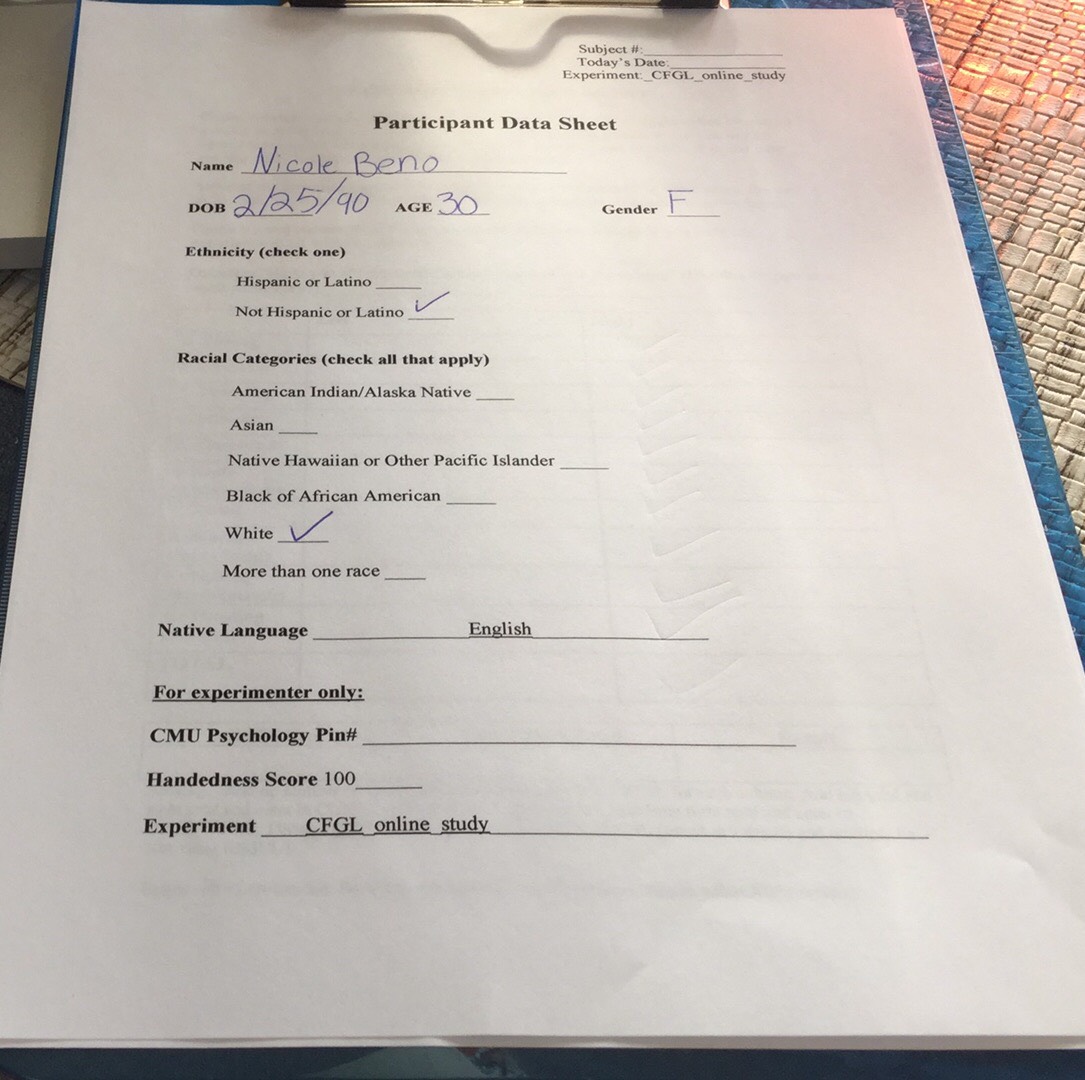 Subject #:______________
Today's Date:____________
Experiment:_CFGL_online_study
Participant Data Sheet
Name Nicole Beno
DOB 2/25/90 AGE 30 Gender F
Ethnicity (check one)
Hispanic or Latino _____
Not Hispanic or Latino ✓
Racial Categories (check all that apply)
American Indian/Alaska Native ____
Asian ____
Native Hawaiian or Other Pacific Islander _____
Black of African American _____
White ✓
More than one race ____
Native Language English
For experimenter only:
CMU Psychology Pin# ____________
Handedness Score 100______
Experiment ____CFGL_online_study____